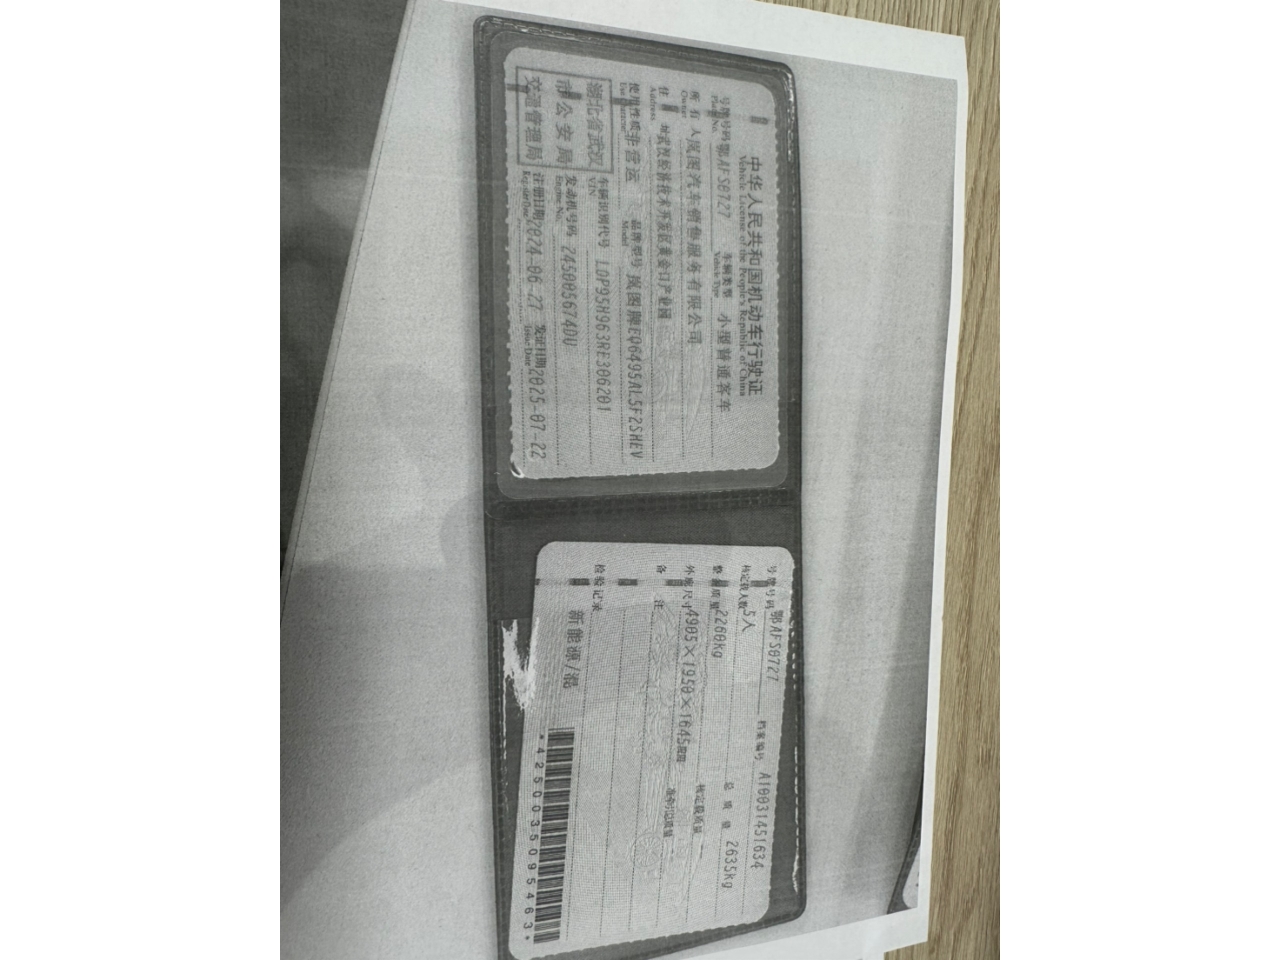 中华人民共和国机动车行驶证
Vehicle License of the People's Republic of China
号牌号码 鄂AFS0727 车辆类型 小型普通客车
Plate No. Vehicle Type
所有人 岚图汽车销售服务有限公司
Owner
住址 武汉经济技术开发区黄金口产业园
Address
使用性质 非营运 品牌型号 岚图牌EQ6495AL5F2SHEV
Use Character Model
湖北省武汉
市公安局
交通管理局
车辆识别代号 LDP95H963RE306201
VIN
发动机号码 2450056740U
Engine No.
注册日期 2024-06-27 发证日期 2025-07-22
Register Date Issue Date
号牌号码 鄂AFS0727 档案编号 A10031451634
核定载人数 5人 总质量 2635kg
整备质量 2260kg 核定载质量
外廓尺寸 4905×1950×1645mm 准牵引总质量
备注
检验记录
新能源/混
*4250035095463*